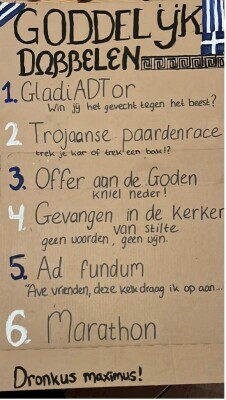 GODDELIJK
DOBBELEN
1. GladiADTor
Win jij het gevecht tegen het beest?
2 Trojaanse paardenrace
trek je kar of trek een bak!?
3. Offer aan de Goden
kniel neder!
4 Gevangen in de Kerker
van stilte
geen woorden, geen wijn.
5. Ad fundum
"Ave vrienden, deze kelk draag ik op aan...
6. Marathon
Dronkus maximus!